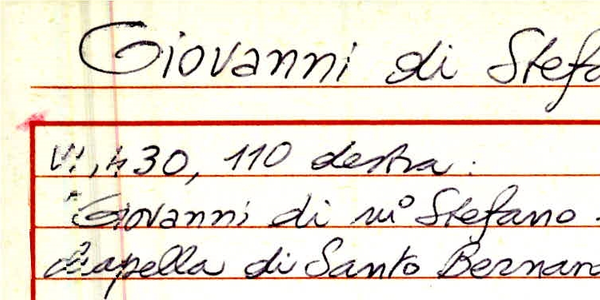 Giovanni di Stefa
VI, 430, 110 destra:
"Giovanni di mº Stefano
Capella di Santo Bernar